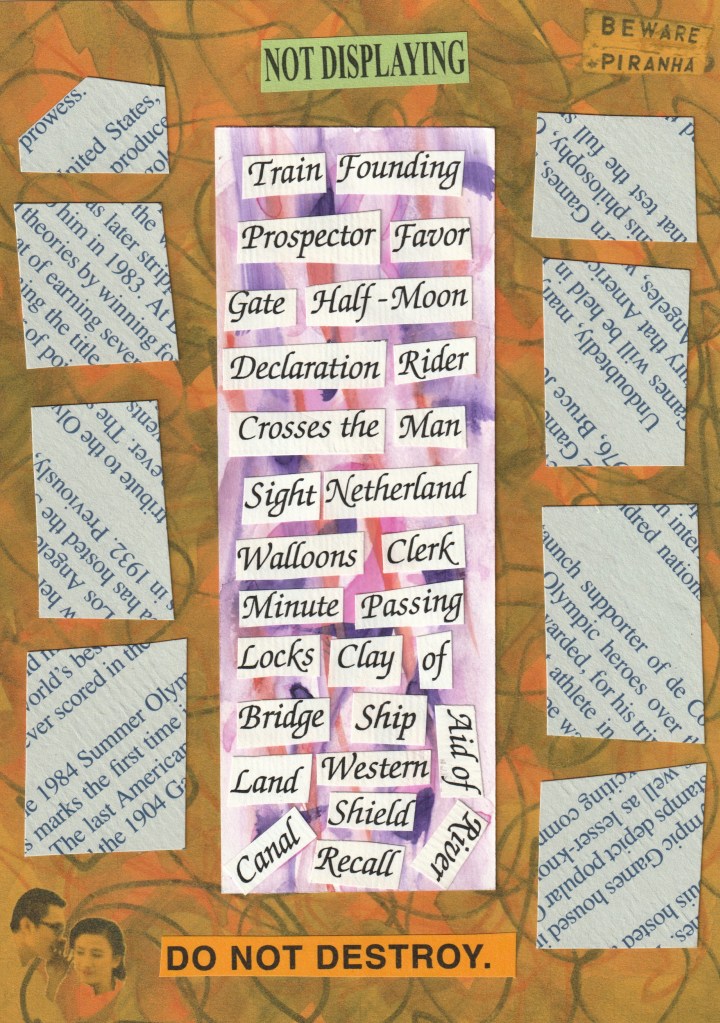 BEWARE
PIRANHA
NOT DISPLAYING
prowess.
nited States,
produce
the
as later stripp
him in 1983. At
theories by winning fo
at of earning seve
ing the title
of poi
Los Angel
a has hosted the
in 1932. Previously,
ever. The
tribute to the Oly
world's bes
ver scored in the
e 1984 Summer Olym
s marks the first time i
The last American
the 1904 Ga
Train Founding
Prospector Favor
Gate Half-Moon
Declaration Rider
Crosses the Man
Sight Netherland
Walloons Clerk
Minute Passing
Locks Clay of
Bridge Ship Aid of
Land Western
Shield
Canal Recall River
rn Games,
his philosophy,
that test the full
Undoubtedly, many
Games will be held in
rry that Americ
Angeles, w
976, Bruce J
in inter
dred nation
aunch supporter of de Co
Olympic heroes over th
warded, for his tri
athlete in
be w
uis hosted
mpic Games housed i
stamps depict popular
well as lesser-kno
xciting com
DO NOT DESTROY.